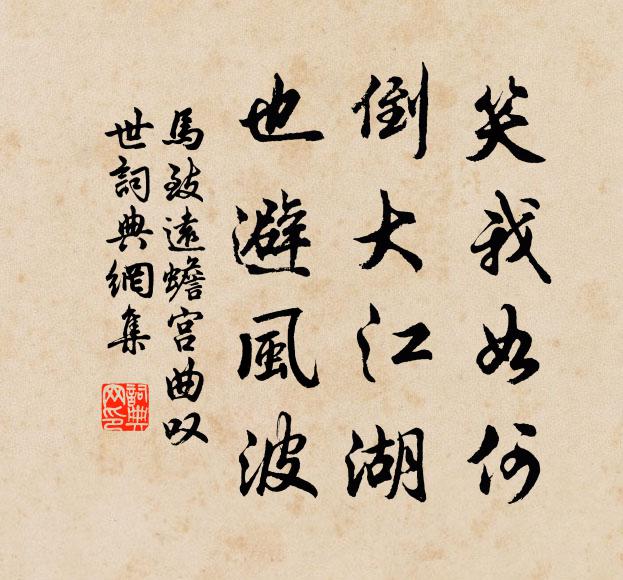 笑我如何
倒大江湖
也避風波
馬致遠蟾宮曲叹
世詞典網集
詞典网印